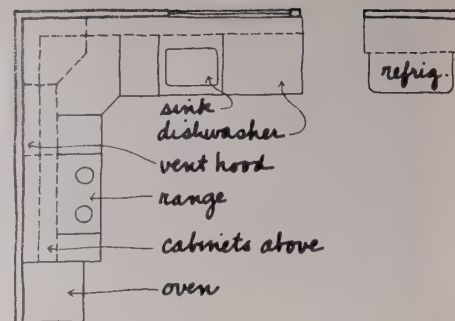 refrig.
sink
dishwasher
vent hood
range
cabinets above
oven